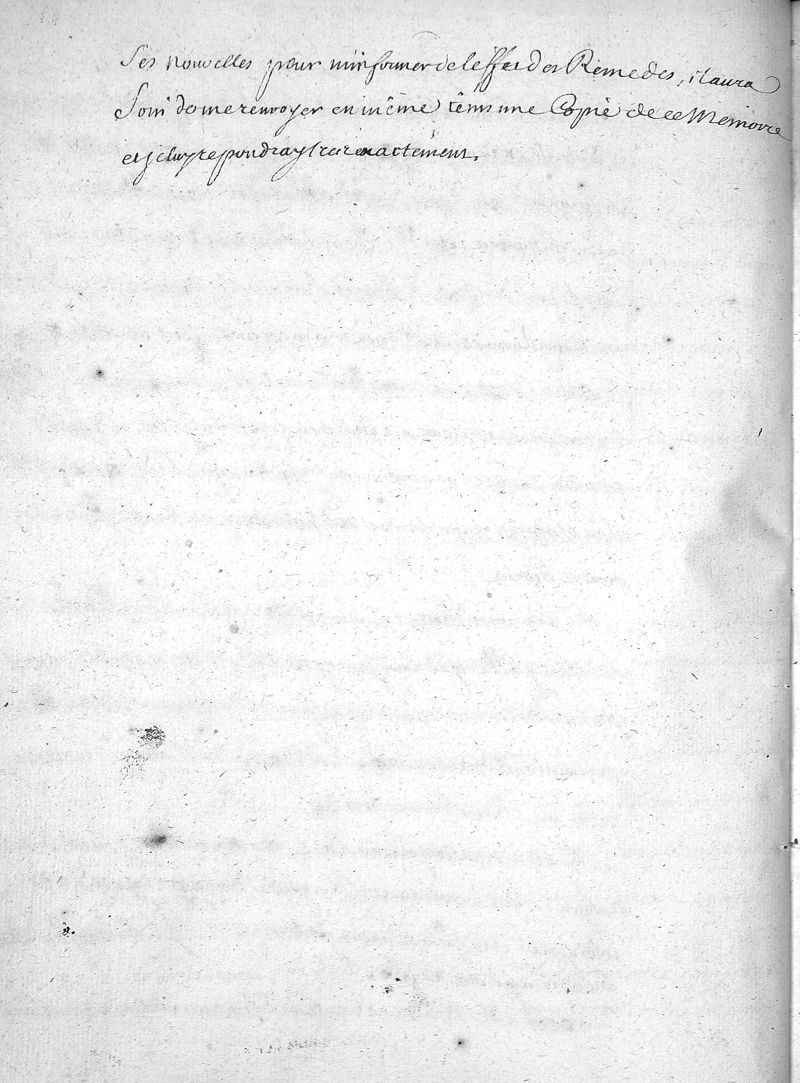 Ses nouvelles pour m'informer de leffet des Remedes, il aura
Soin de me renvoyer en même têms une Copie de ce Memoire
et je luy repondray tres exactement.